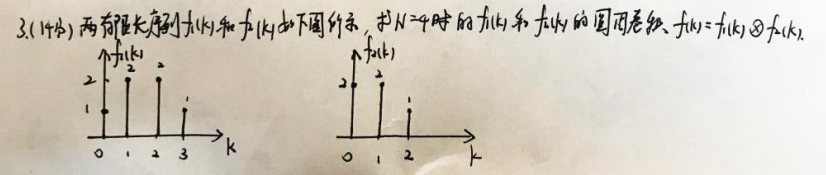 3.(14分) 两有限长序列f₁(k)和f₂(k)如下图所示,求N=4时的f₁(k)和f₂(k)的圆周卷积、f(k)=f₁(k)⊗f₂(k).
f₁(k) f₂(k)
2 2 2 2 2
1 1 1
0 1 2 3 k 0 1 2 k